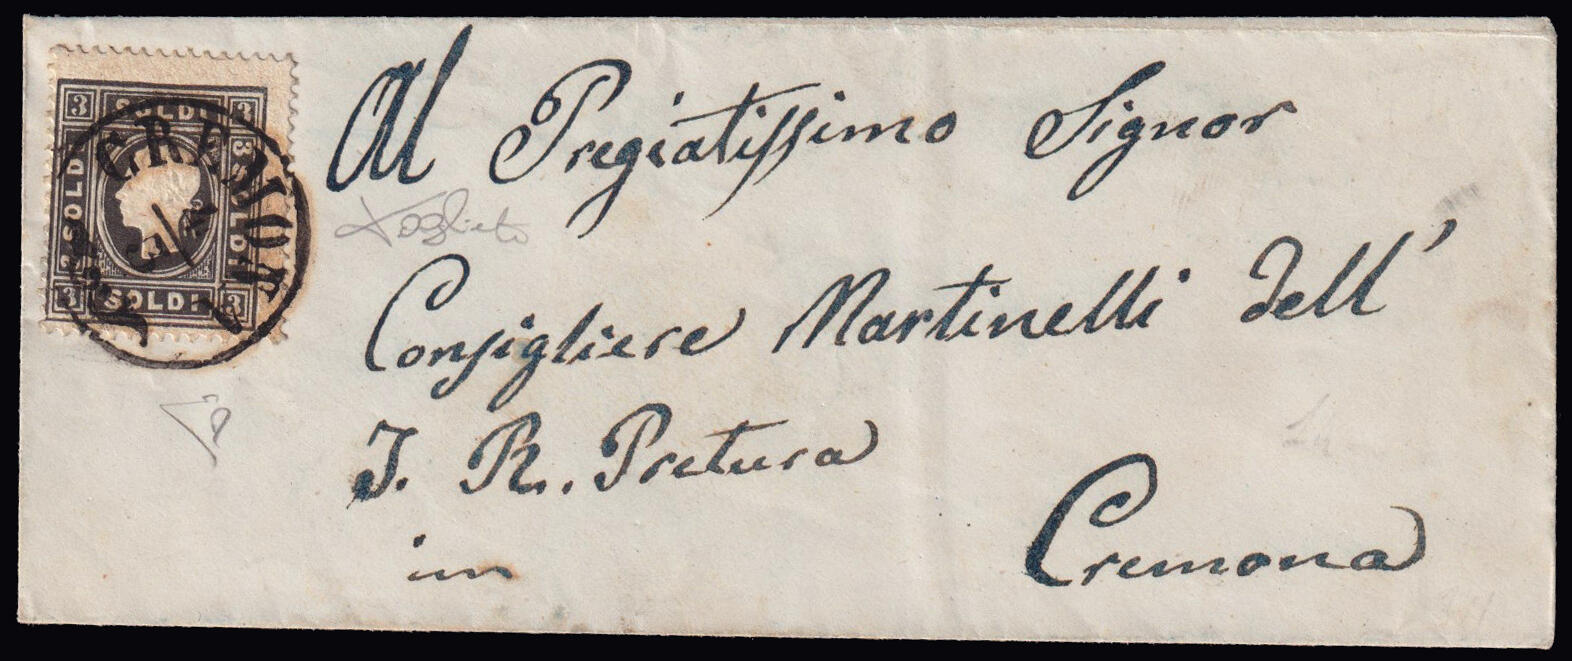 3 SOLDI 3
SOLDI
SOLDI
3 SOLDI 3
CREMONA
Al Pregiatissimo Signor
Consigliere Martinelli dell'
I. R. Pretura
in
Cremona